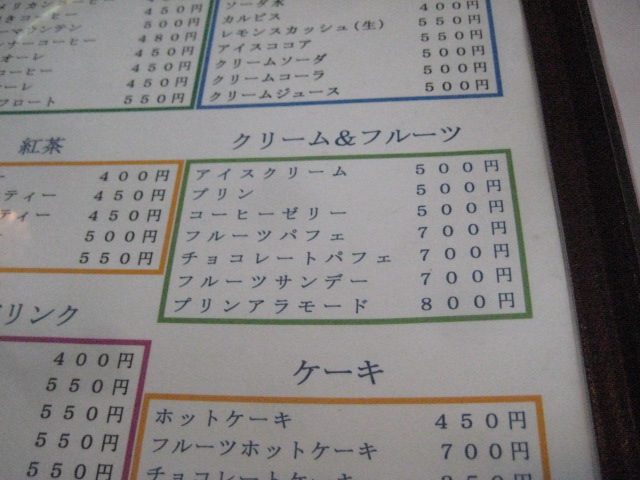 メリカンコーヒー 450円
きコーヒー 500円
ーマウンテン 480円
ーナーコーヒー 450円
オーレ 450円
コーヒー 450円
ーレ 550円
フロート
ソーダ水 400円
カルピス 550円
レモンスカッシュ(生) 550円
アイスココア 500円
クリームソーダ 500円
クリームコーラ 500円
クリームジュース
紅茶
ー 400円
ンティー 450円
ティー 450円
500円
550円
クリーム&フルーツ
アイスクリーム 500円
プリン 500円
コーヒーゼリー 500円
フルーツパフェ 700円
チョコレートパフェ 700円
フルーツサンデー 700円
プリンアラモード 800円
ドリンク
400円
550円
550円
550円
550円
ケーキ
ホットケーキ 450円
フルーツホットケーキ 700円
チョコレートケーキ